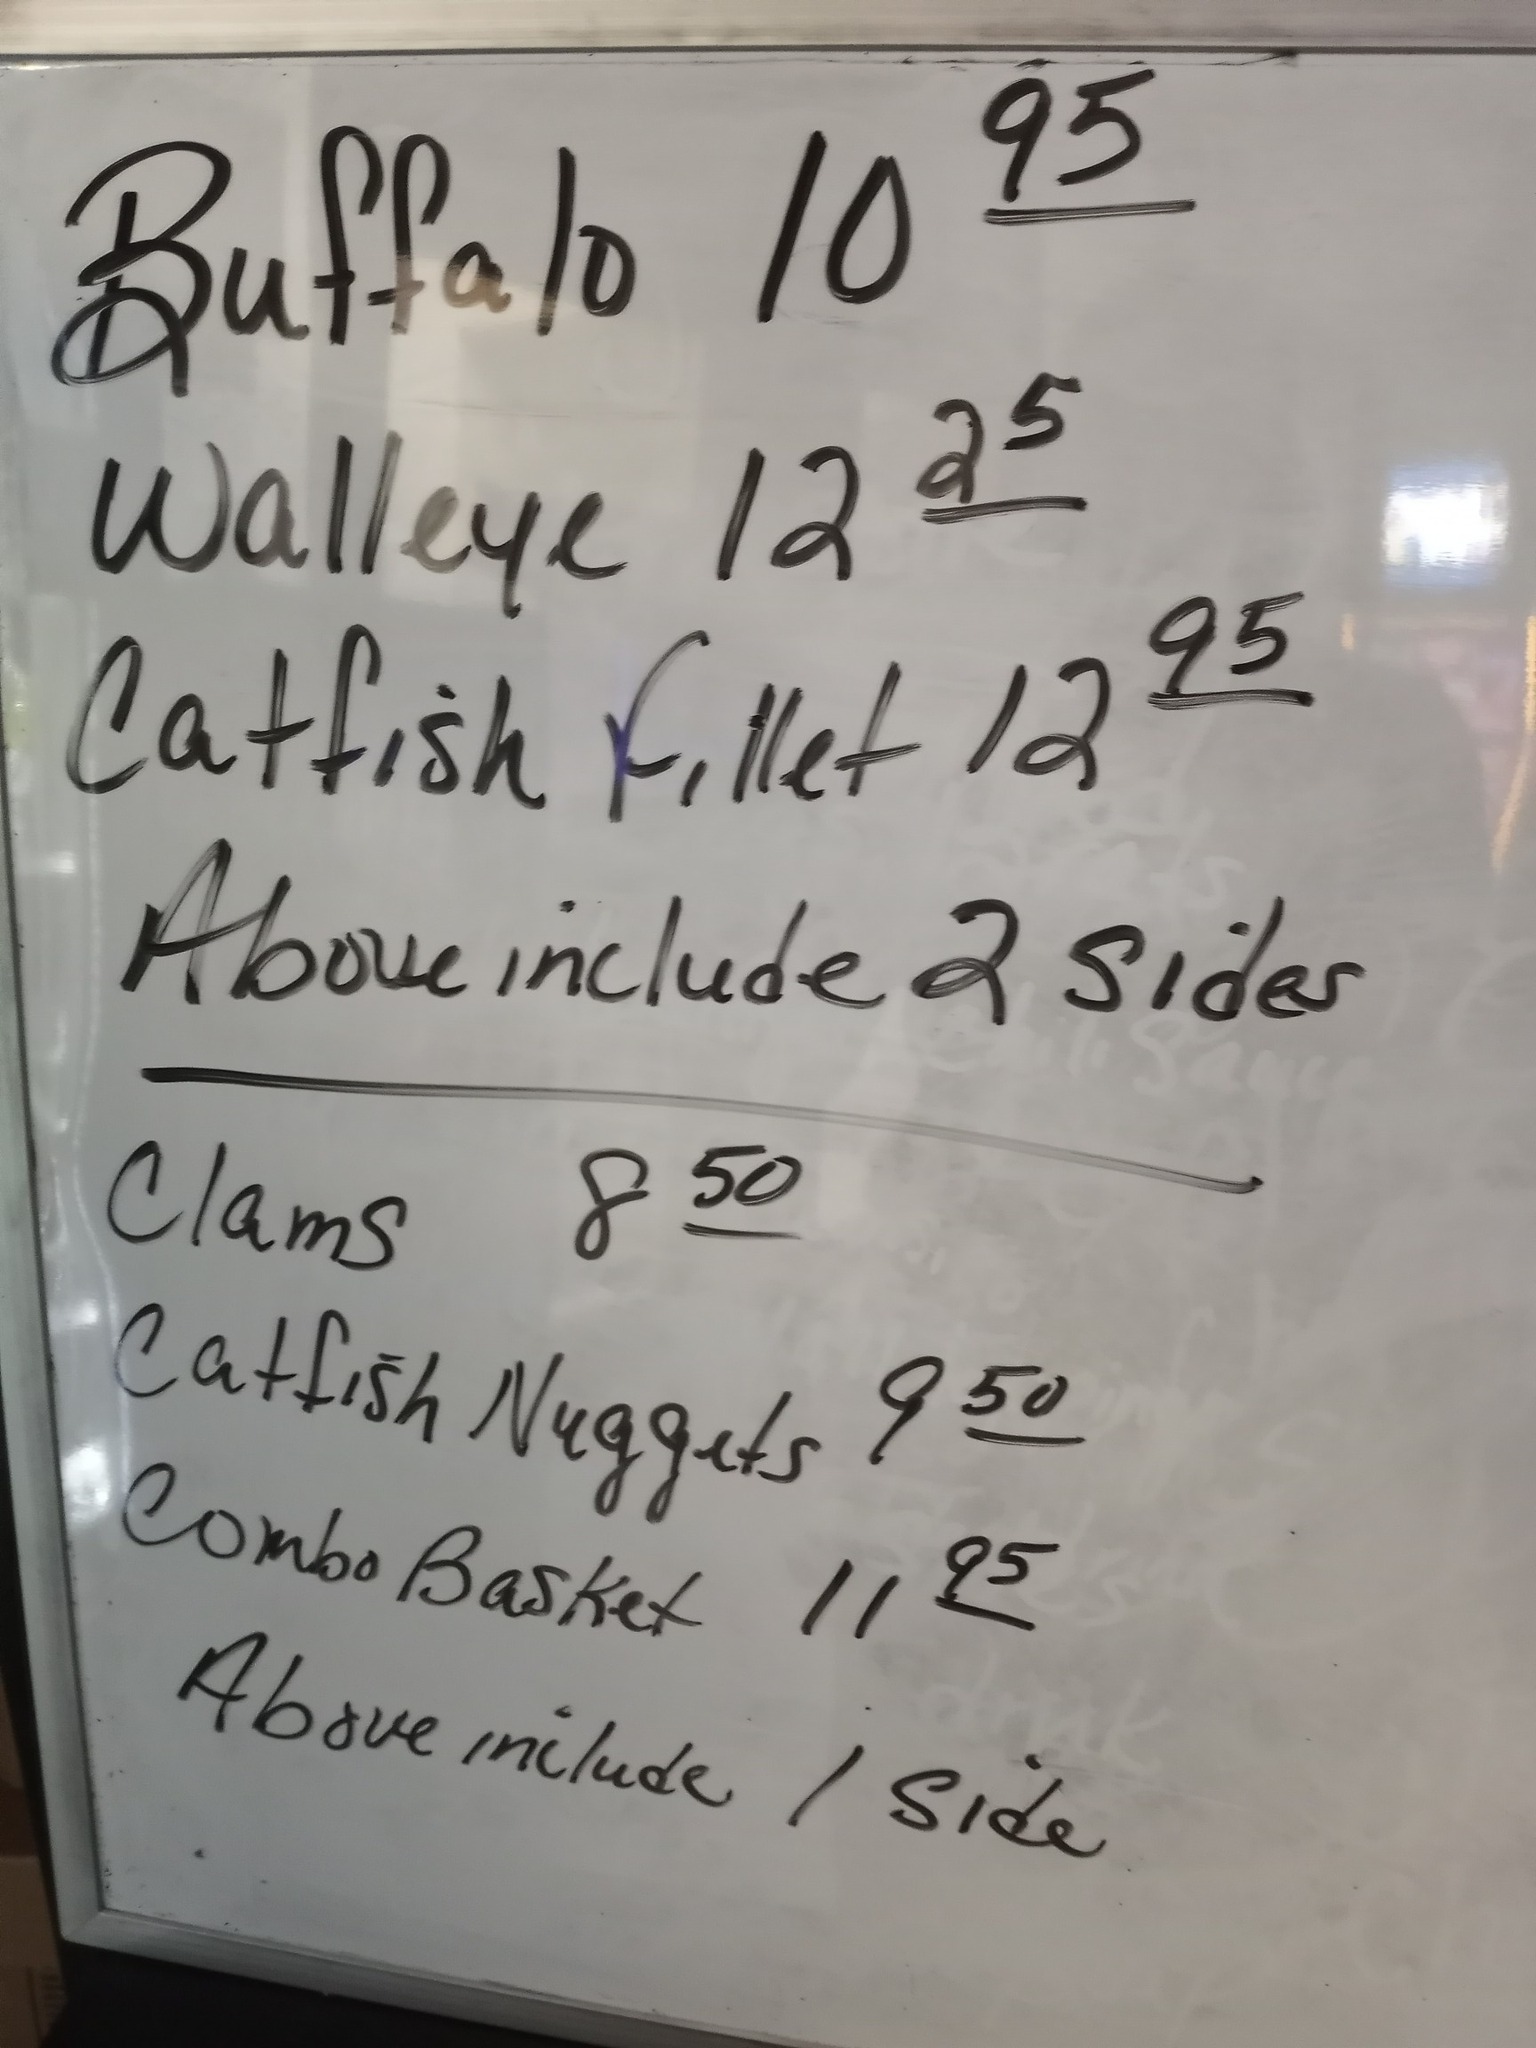 Buffalo 10 95
Walleye 12 25
Catfish Fillet 12 95
Above include 2 Sides
Clams 8 50
Catfish Nuggets 9 50
Combo Basket 11 95
Above include 1 Side